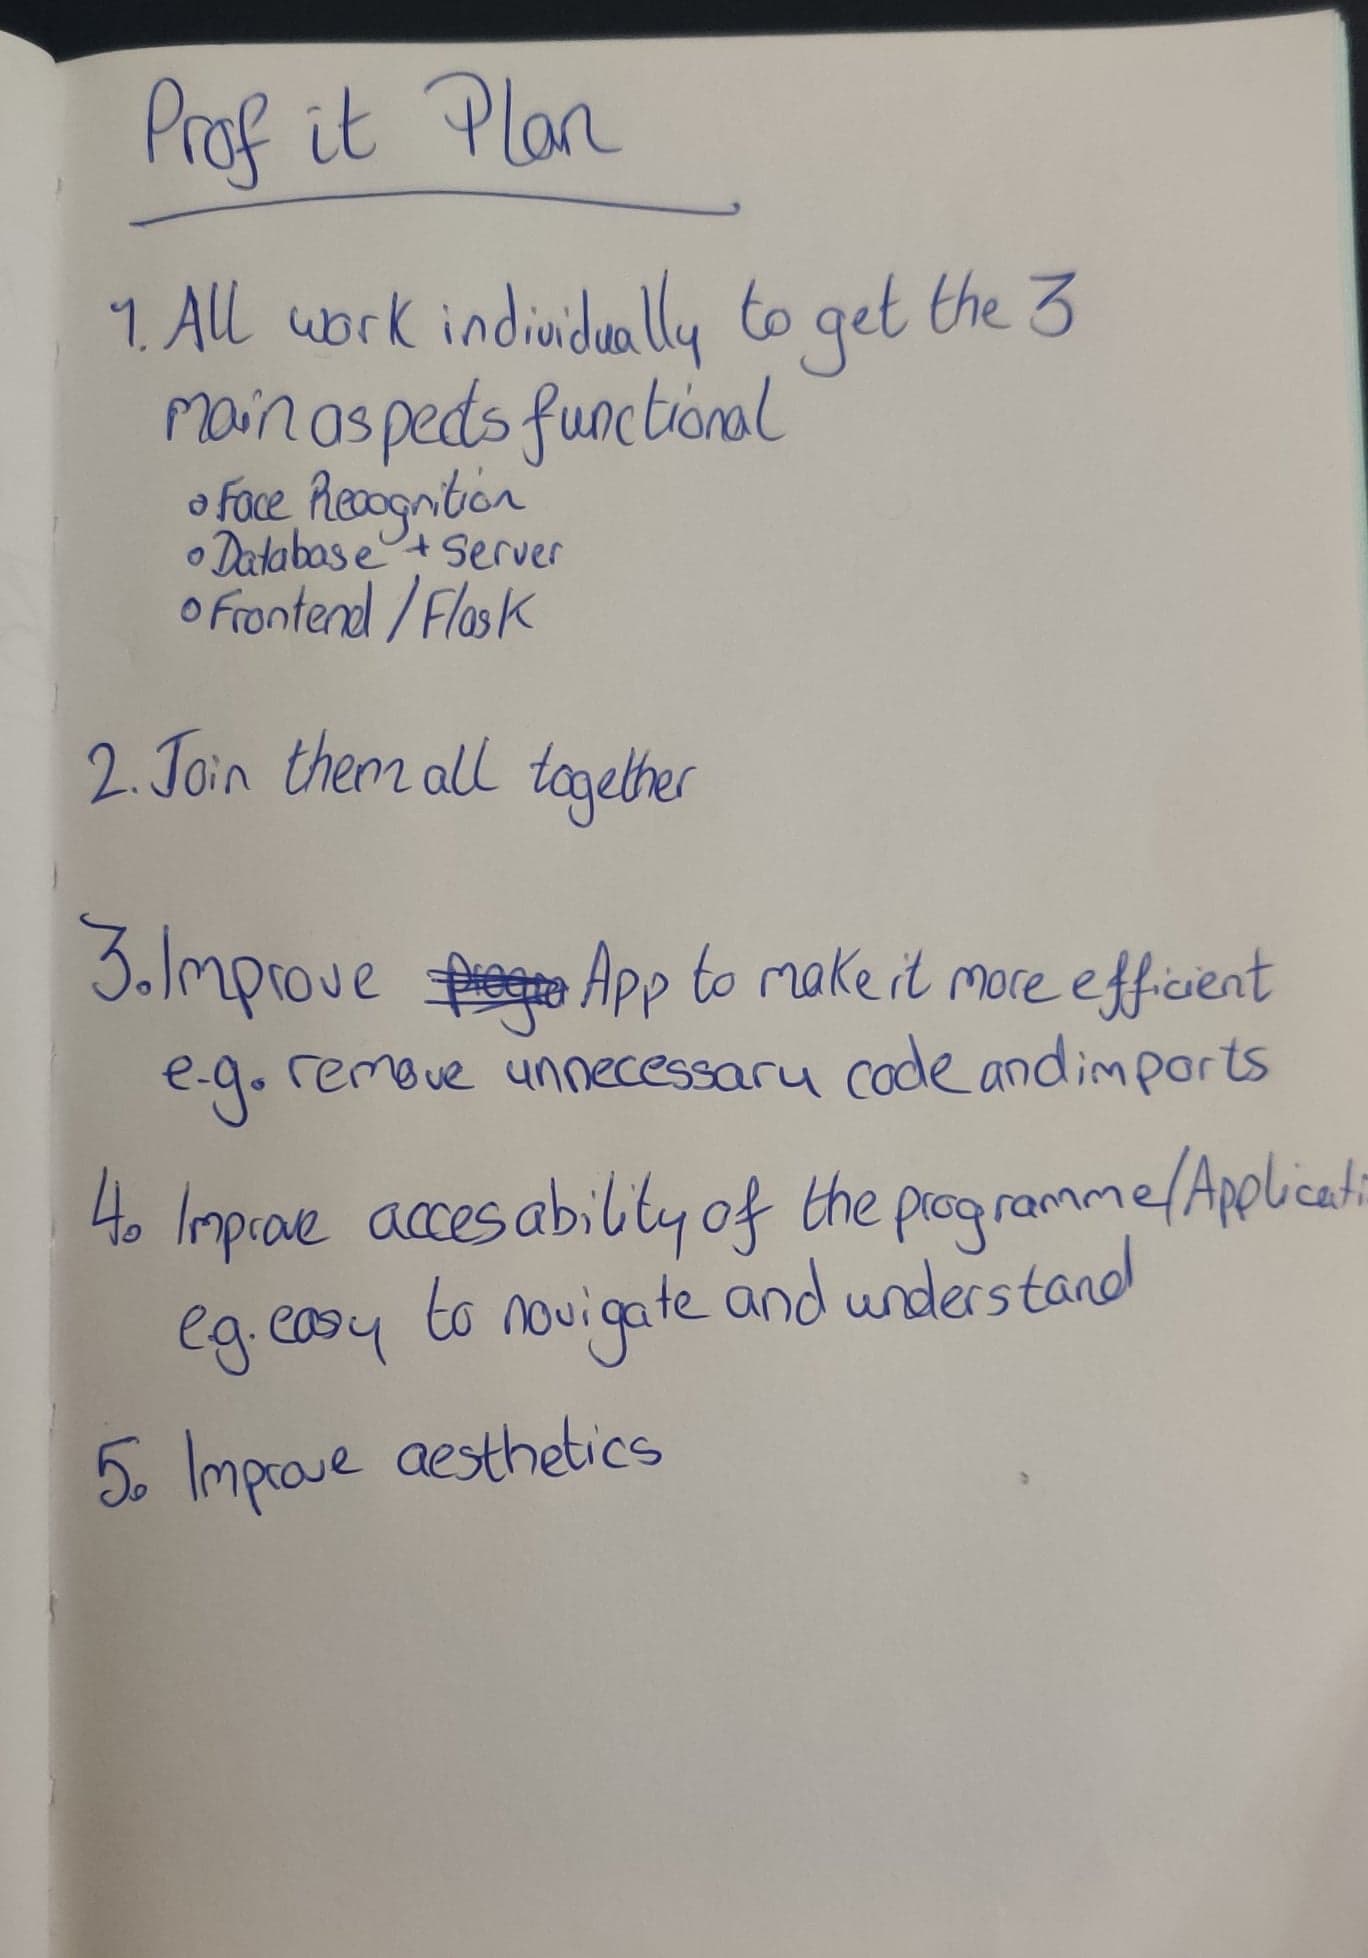 Prof it Plan
1. All work individually to get the 3
main aspects functional
o Face Recognition
o Database + Server
o Frontend / Flask
2. Join them all together
3. Improve progra App to make it more efficient
e.g. remove unnecessary code and imports
4. Improve accesability of the programme/Applicati
e.g. easy to navigate and understand
5. Improve aesthetics